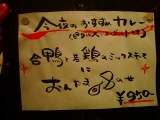 今夜のおすすめカレー
合鴨と若鶏のミックスソテーに
おんたま のせ
¥950